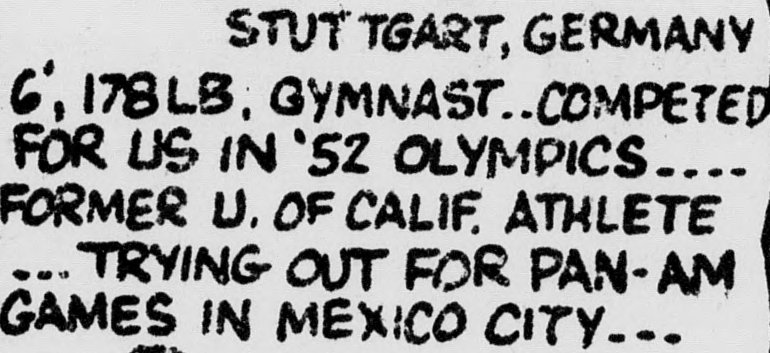 STUTTGART, GERMANY
6', 178 LB, GYMNAST..COMPETED
FOR US IN '52 OLYMPICS....
FORMER U. OF CALIF. ATHLETE
... TRYING OUT FOR PAN-AM
GAMES IN MEXICO CITY...